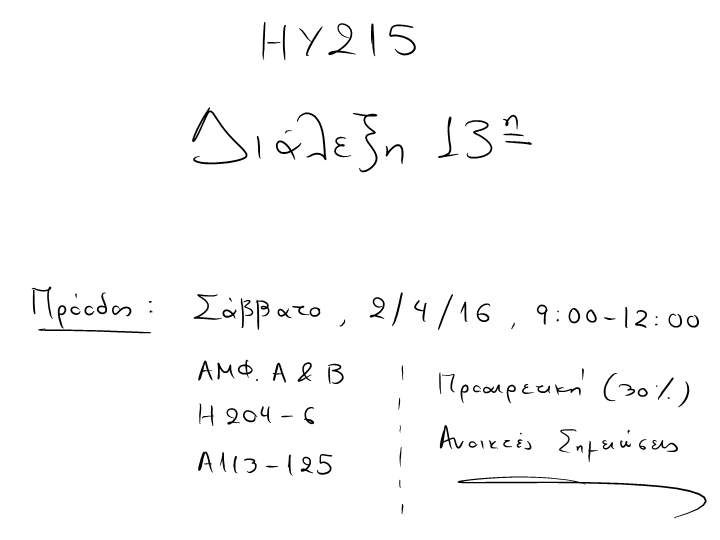 ΗΥ215
Διάλεξη 13η
Πρόοδος: Σάββατο, 2/4/16, 9:00-12:00
ΑΜΦ. Α & Β
Η204-6
Α113-125
Προαιρετική (30%)
Ανοικτές Σημειώσεις